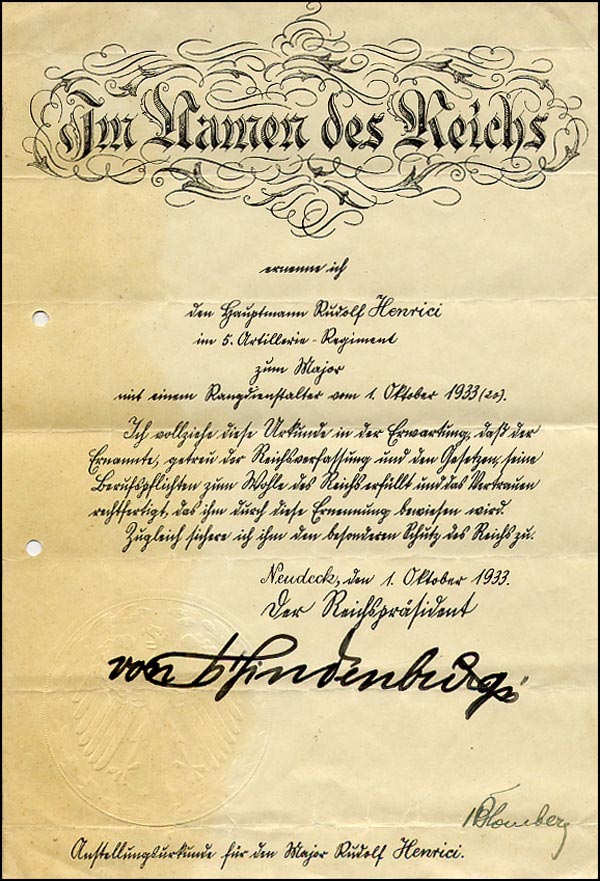 Im Namen des Reichs
ernenne ich
den Hauptmann Rudolf Henrici
im 5. Artillerie-Regiment
zum Major
mit einem Rangdienstalter vom 1. Oktober 1933 (20).
Ich vollziehe diese Urkunde in der Erwartung, daß der
Ernannte, getreu der Reichsverfassung und den Gesetzen, seine
Berufspflichten zum Wohle des Reichs erfüllt und das Vertrauen
rechtfertigt, das ihm durch diese Ernennung bewiesen wird.
Zugleich sichere ich ihm den besonderen Schutz des Reichs zu.
Neudeck, den 1. Oktober 1933.
Der Reichspräsident
von Hindenburg
Blomberg
Anstellungsurkunde für den Major Rudolf Henrici.